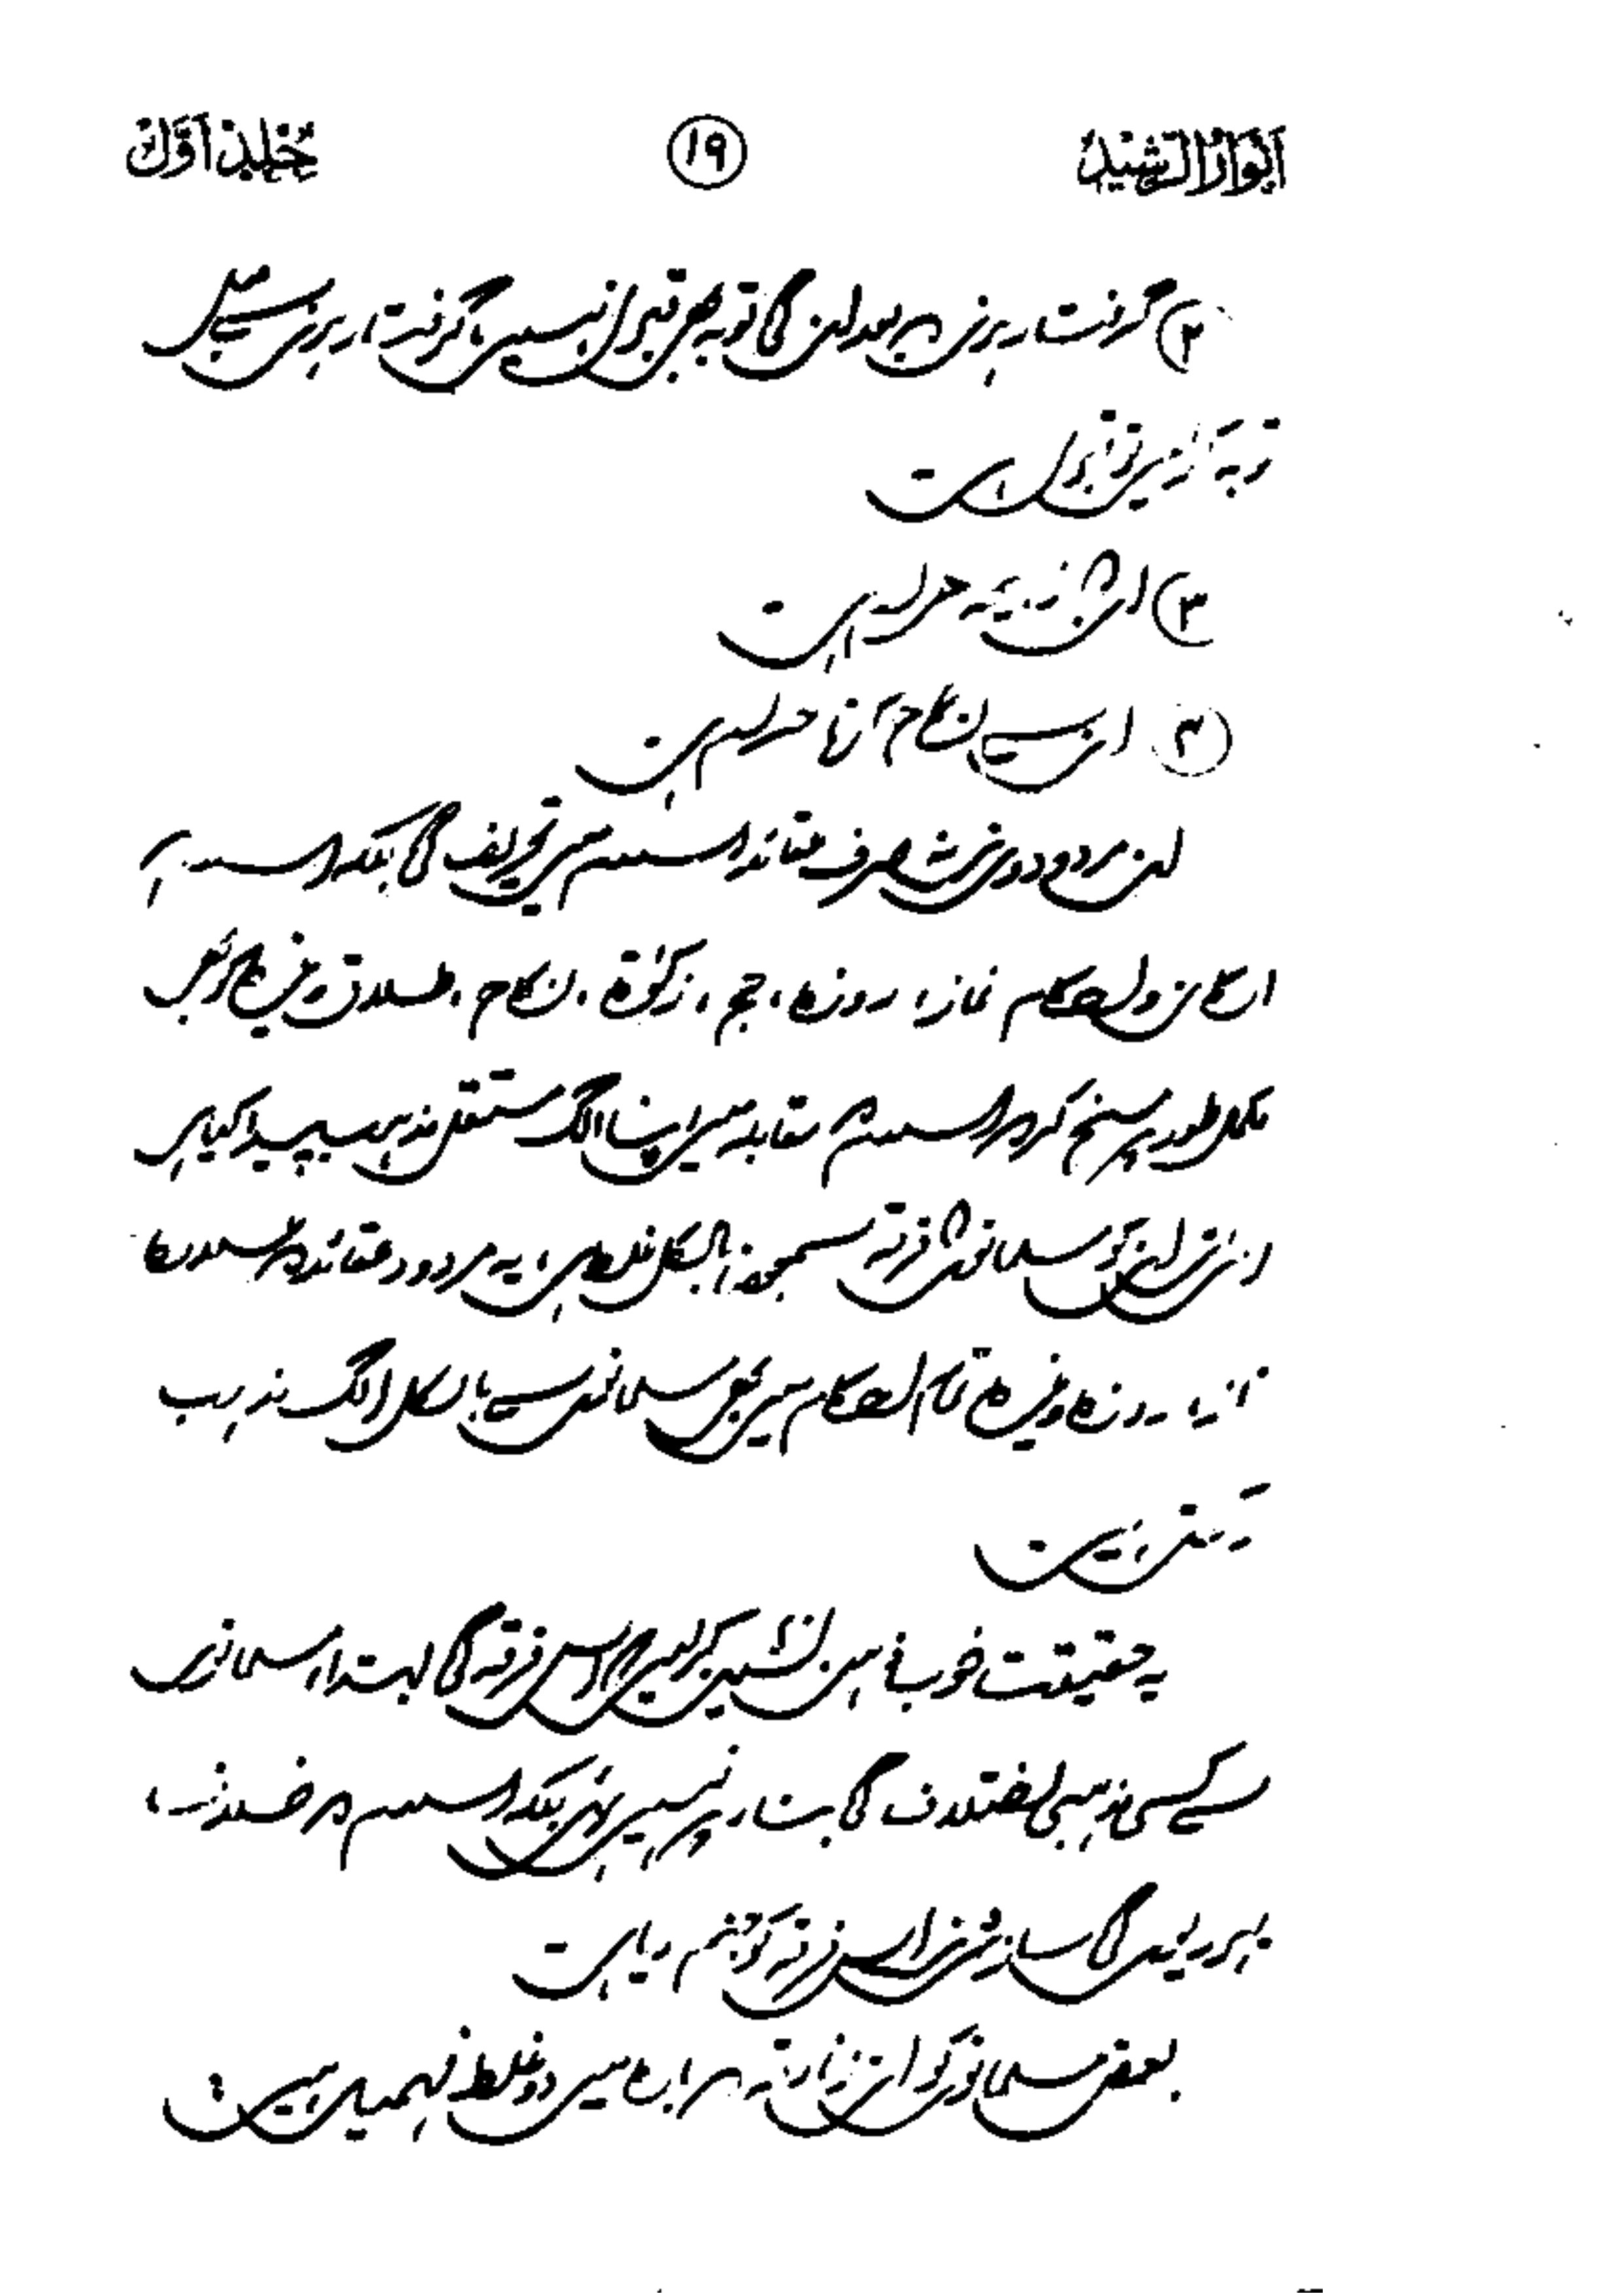 انوار الرشید ۱۹ جلد اول
② گرفتار ہونے کے بعد ان کی توبہ بھی قبول نہیں، گرفتار ہونے سے پہلے
توبہ کر لیں تو قبول ہے۔
③ ان کا ذبیحہ حرام ہے۔
④ ان سے نکاح کرنا حرام ہے۔
ان مردودوں نے نہ صرف عقائد اسلام میں تحریف کی بلکہ اسلام کے
ارکان و احکام نماز، روزہ، حج، زکوٰۃ، نکاح، طلاق وغیرہ کو بھی
مکمل طور پر مسخ کر کے اسلام کے مقابلہ میں اپنا الگ مستقل مذہب پیدا کیا ہے
اس لئے ان کو مسلمانوں کا فرقہ سمجھنا بالکل غلط ہے، یہ مردود عقائد کے علاوہ
نماز، روزہ وغیرہ تمام احکام میں بھی مسلمانوں سے بالکل الگ مذہب
رکھتے ہیں۔
یہ حقیقت خوب ذہن نشین کر لیں کہ اس فرقہ کی ابتداء مسلمانوں
سے کسی مذہبی اختلاف کی بناء پر نہیں ہوئی بلکہ اسلام کے خلاف
یہودیوں کی سازش نے اس فرقہ کو جنم دیا ہے۔
بعض مسلمانوں کو ان زنادقہ کے بارہ میں دو غلط فہمیاں ہیں: